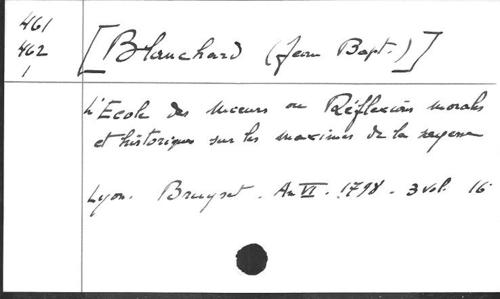 461
462
1
[Blanchard (Jean Bapt.)]
L'Ecole des Mœurs ou Réflexions morales
et historiques sur les maximes de la sagesse
Lyon. Bruyset. An VI. 1798. 3 vol. 16